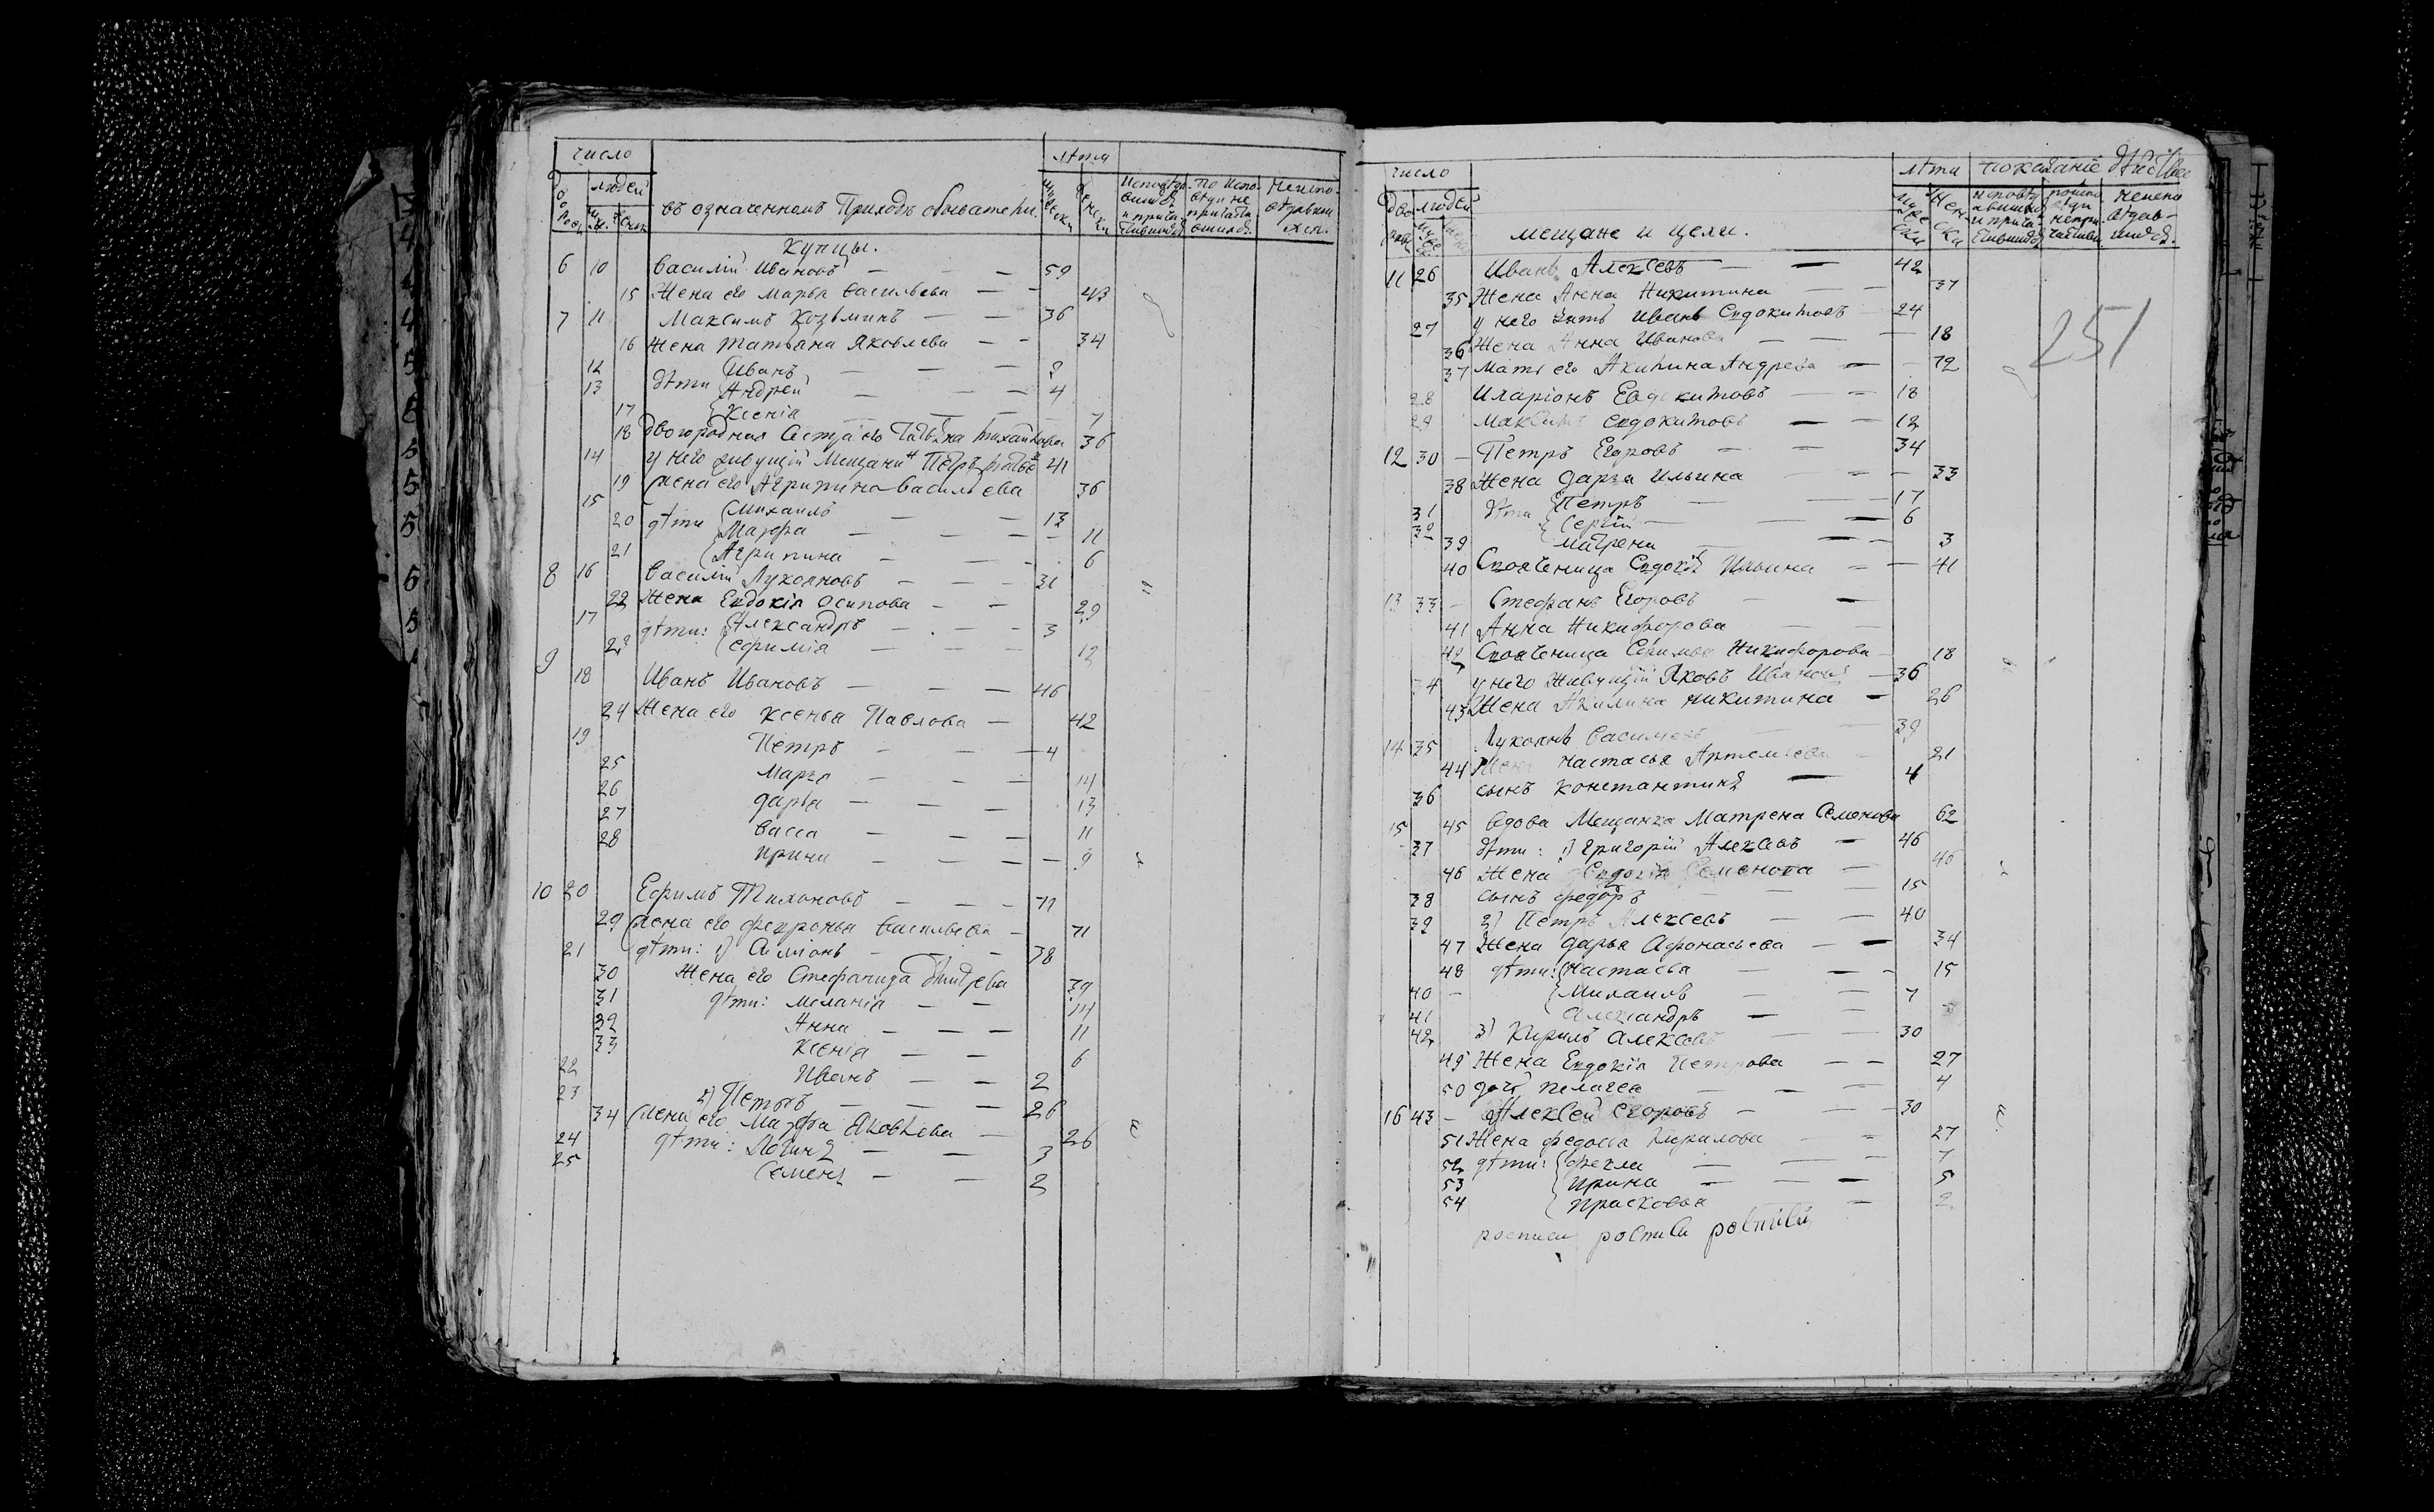 число
лѣта
людей
въ означенномъ Приходѣ обыватели.
Купцы.
6 10 Василій Ивановъ — — — 59
15 Жена его Марѳа Васильева — — 43
7 11 Максимъ Козьминъ — — 36
16 Жена Татьяна Яковлева — — 34
12 Иванъ — — —
13 дѣти Андрей — — 4
17 Ксенія — — — 7
18 двоюродная Сестра его Татьяна 36
14 у него живущій Мещанинъ Петръ 41
19 Жена его Агрипина Васильева 36
15 Михаилъ — — 13
20 дѣти Марфа — — — 11
21 Агрипина — — — 6
8 16 Василій Лукояновъ — — — 31
22 Жена Евдокія Осипова — — 29
17 дѣти: Александръ — — — 3
23 Ефимія — — — 12
9
18 Иванъ Ивановъ — — — 46
24 Жена его Ксенья Павлова — 42
19 Петръ — — — 4
25 Марѳа — — — 14
26 Дарья — — — 13
27 Васса — — — 11
28 Ирина — — — — 9
10 20 Ефимъ Тихоновъ — — — 71
29 Жена его Февронья Васильева — 71
21 дѣти: 1) Симіонъ — — — 38
30 Жена его Стефанида 39
31 дѣти: Меланія — — 14
32 Анна — — — 11
33 Ксенія — — 6
22 Иванъ — — 2
23 2) Петръ — — — 26
34 Жена его Марфа Яковлева — 26
24 дѣти: Логинъ — — 3
25 Семенъ — — 2
число
лѣта показаніе дѣйствія
людей
мещане и цехи.
251
11 26 Иванъ Алексѣевъ — — 42
35 Жена Анна Никитина — — 37
27 у него зять Иванъ Евдокимовъ — 24
36 Жена Анна Иванова — — — 18
37 Мать его Акилина Андреева — — 72
28 Иларіонъ Евдокимовъ — — 18
29 Максимъ Евдокимовъ — — 12
12 30 — Петръ Егоровъ — — 34
38 Жена Дарья Ильина — — 33
31 дѣти Петръ — — 17
32 Сергій — — — 6
39 Матрена — — — 3
40 Свояченица Евдокія Ильина — — 41
13 33 — Стефанъ Егоровъ — —
41 Анна Никифорова — —
42 Свояченица Ефимья Никифорова — 18
34 у него Живущій Яковъ Ивановъ — 36
43 Жена Акилина Никитина — 26
14 35 Лукоянъ Васильевъ — 39
44 Жена Настасья Артемьева — 21
36 сынъ Константинъ — 4
15 45 Вдова Мещанка Матрена Семенова 62
37 дѣти: 1) Григорій Алексѣевъ — 46
46 Жена Евдокія Семенова — 46
38 сынъ Федоръ — — 15
39 2) Петръ Алексѣевъ — — 40
47 Жена Дарья Афонасьева — — 34
48 дѣти: Настасья — — - 15
40 — Михаилъ — — 7
41 Александръ — —
42 3) Кирилъ Алексѣевъ — — 30
49 Жена Евдокія Петрова — — 27
50 дочь Пелагея — — — 4
16 43 — Алексѣй Егоровъ — — 30
51 Жена Федосья Кирилова — — 27
52 дѣти: Фекла — — — 7
53 Ирина — — — 5
54 Прасковья — — 2
росписи